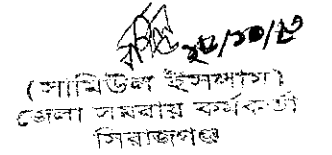 ২৮/১০/২৩
(সামিউল ইসলাম)
জেলা সমবায় কর্মকর্তা
সিরাজগঞ্জ